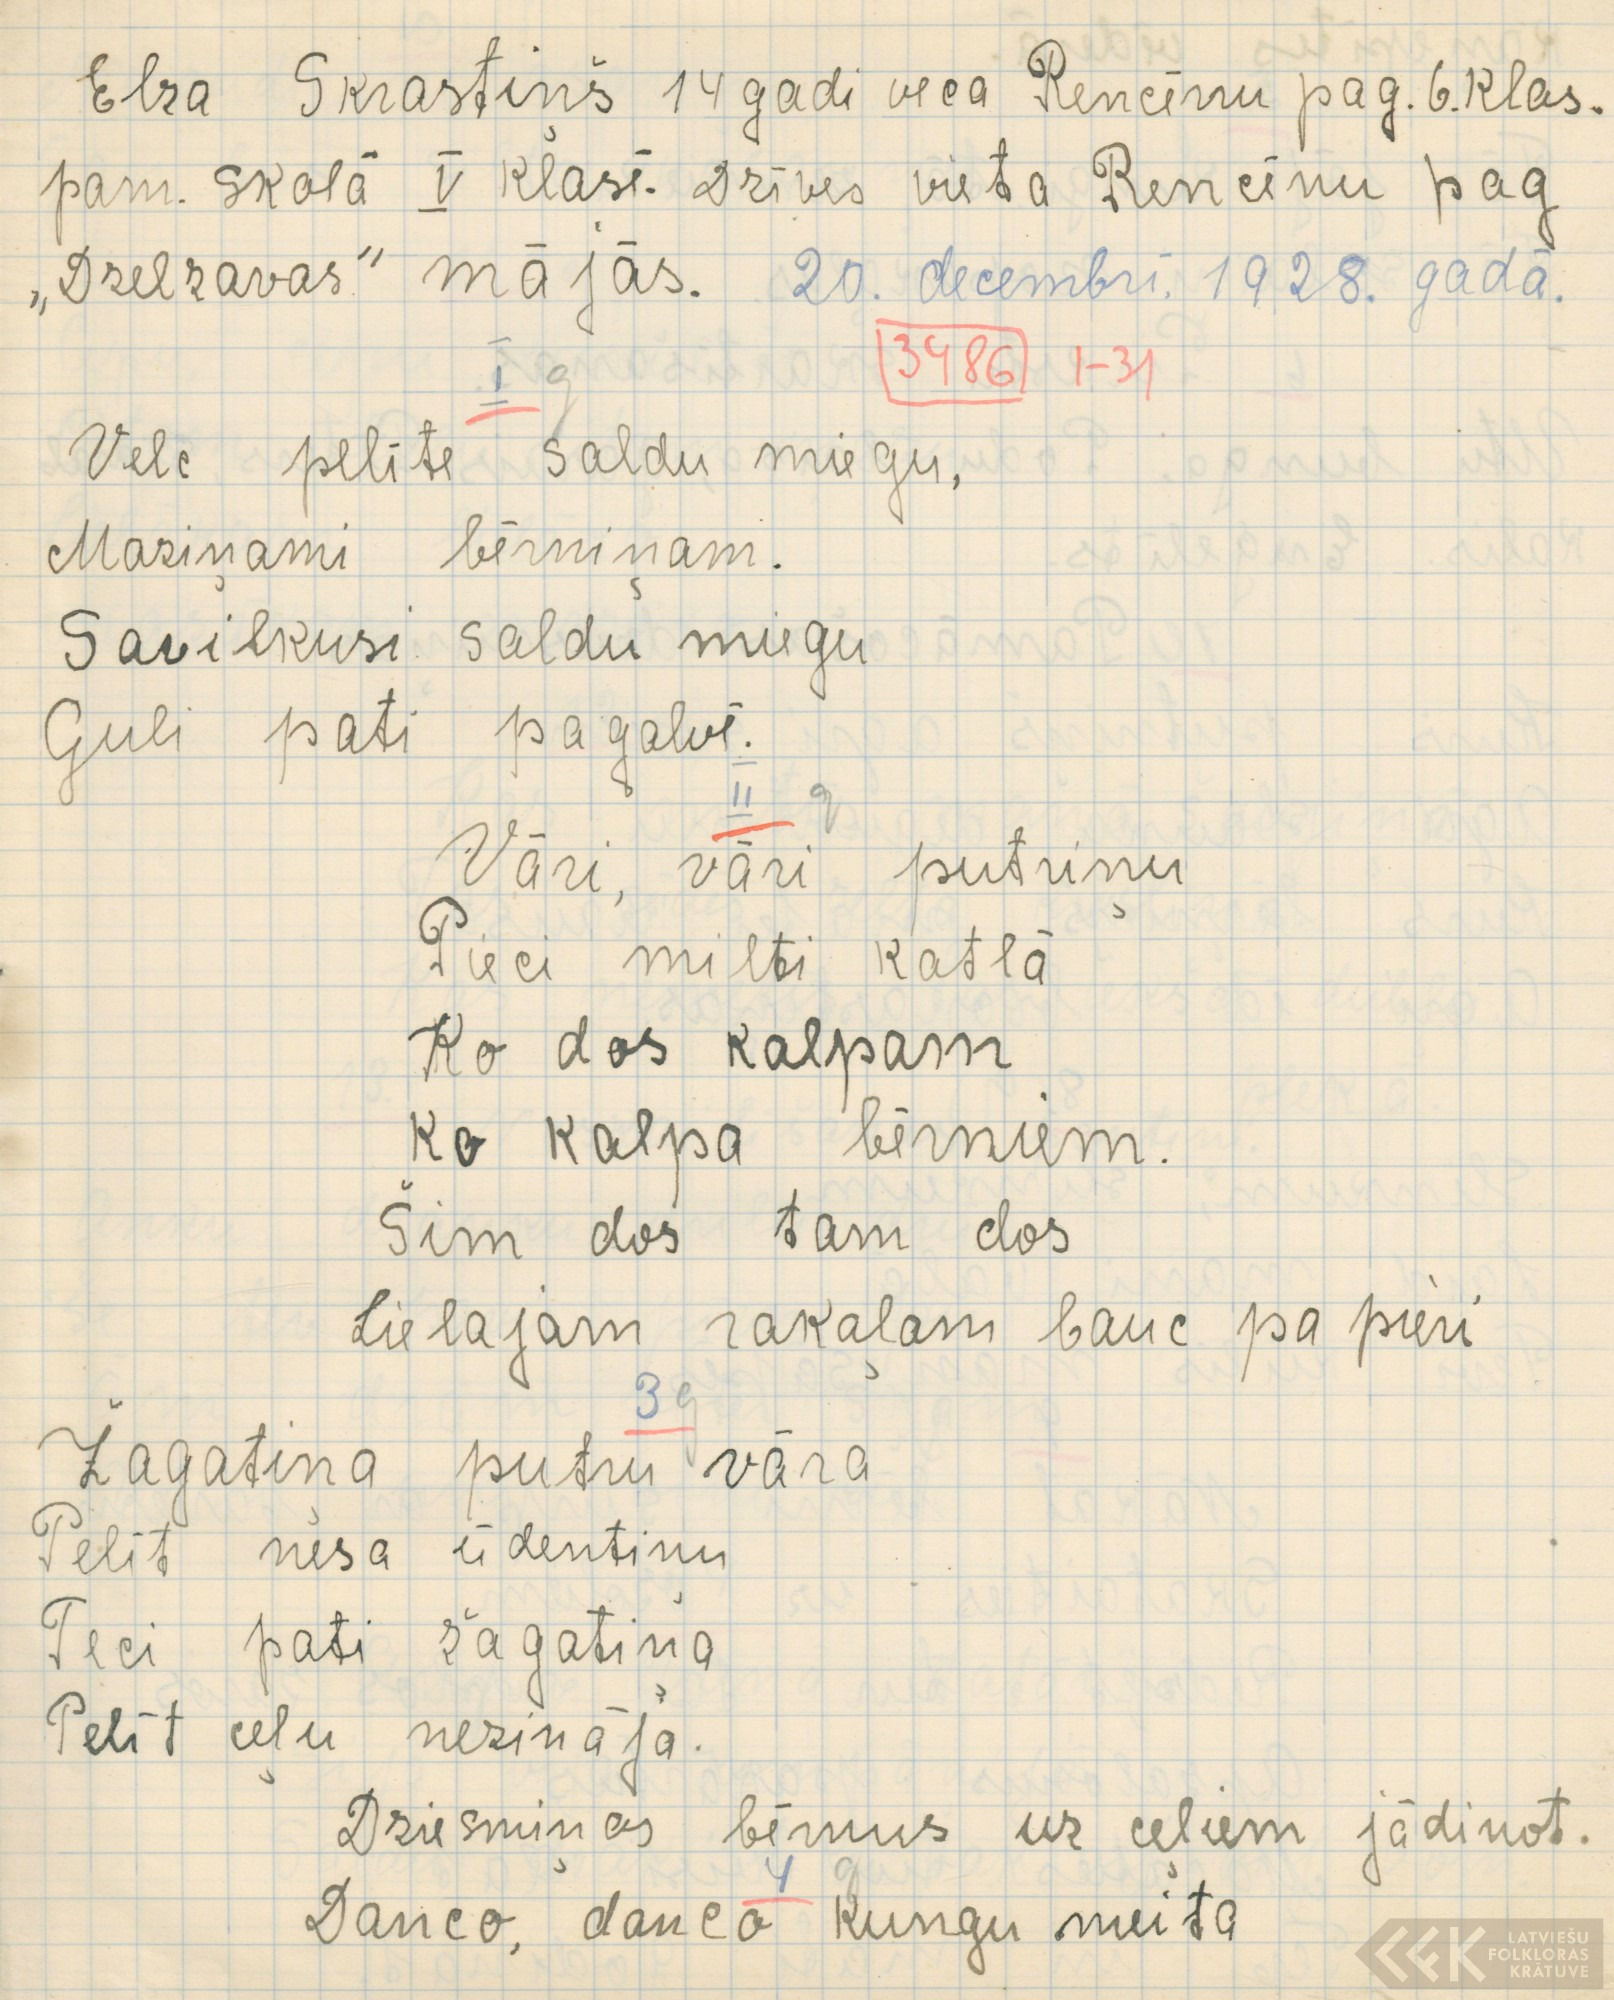 Elza Skrastiņš 14 gadi veca Rencēnu pag. 6. klas.
pam. skolā V klasē. Dzīves vieta Rencēnu pag
„Dzelzavas" mājās. 20. decembrī. 1928. gadā.
3486 1-31
I g
Velc pelīte saldu miegu,
Maziņami bērniņam.
Savilkusi saldu miegu
Guli pati pagalvē.
II g
Vāri, vāri putriņu
Pieci milti katlā
Ko dos kalpam
Ko kalpa bērniem.
Šim dos tam dos
Lielajam rakaļam bauc pa pieri
3 g
Žagatiņa putru vāra
Pelīt nesa ūdentiņu
Teci pati žagatiņa
Pelīt ceļu nezināja.
Dziesmiņas bērnus uz ceļiem jādinot.
4 g
Danco, danco kungu meita
LATVIEŠU
FOLKLORAS
KRĀTUVE